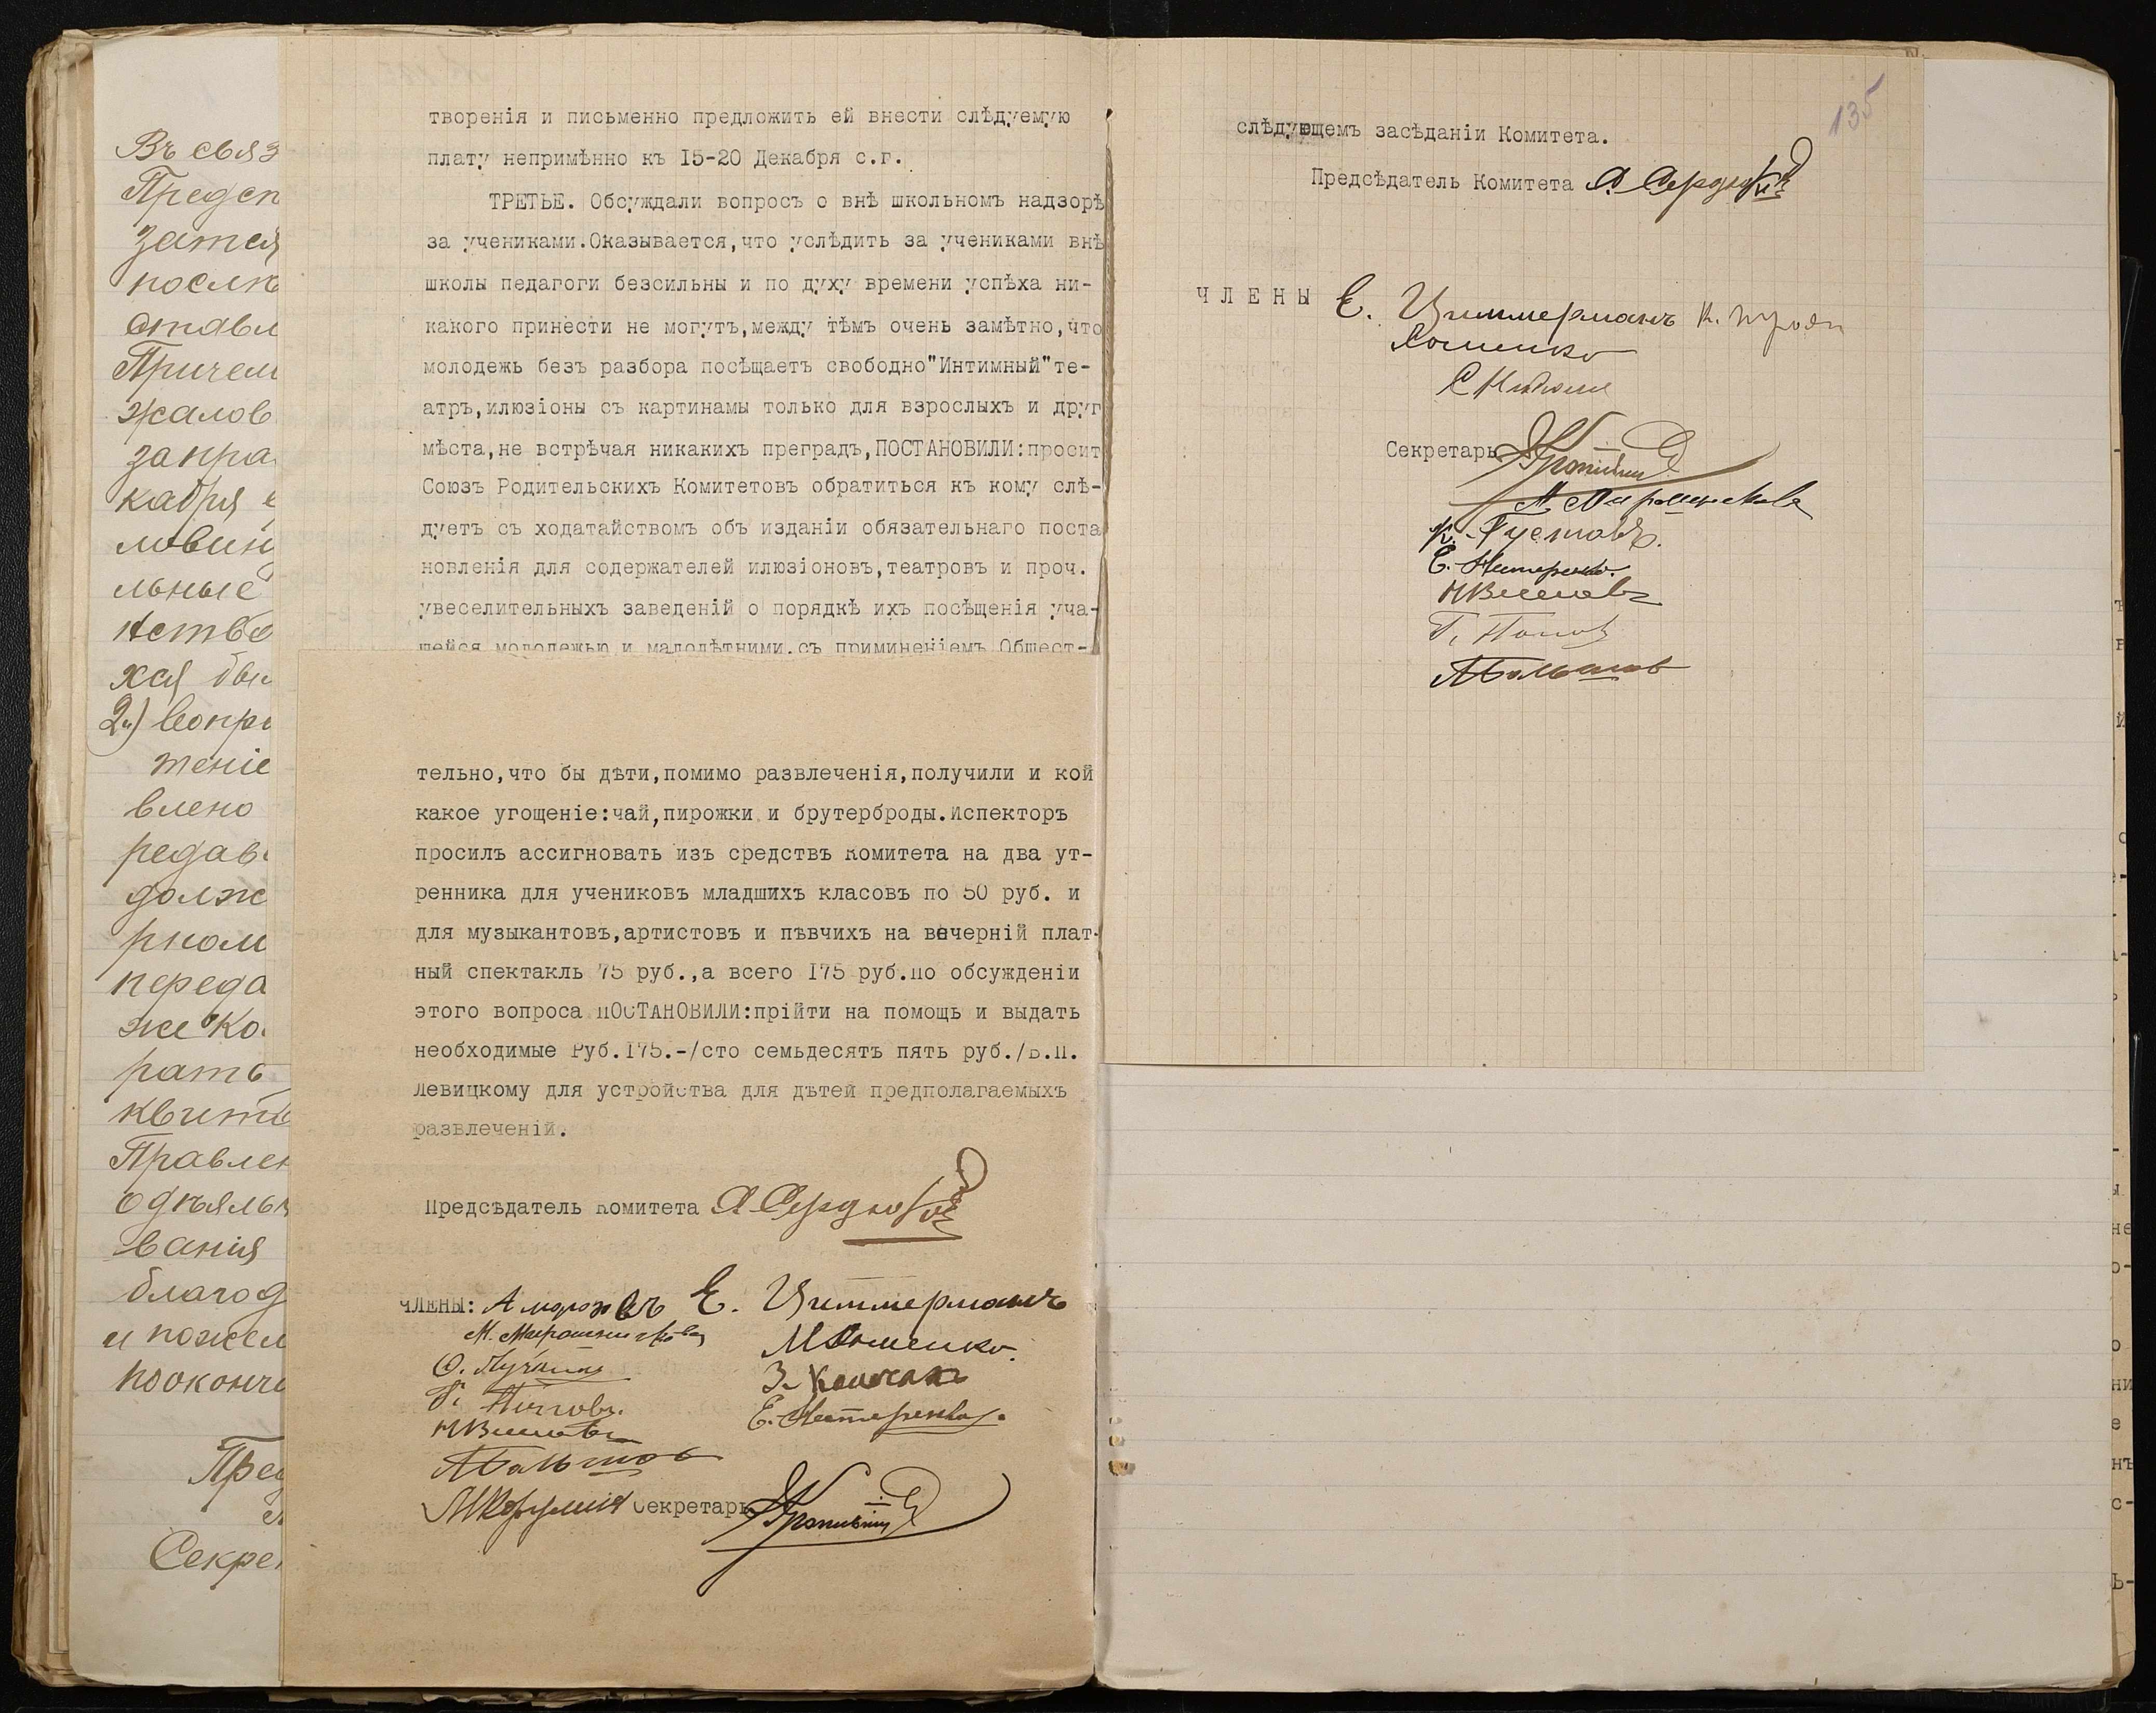 Въ связ
Предсп
затея
послѣ
ставл
Причем
жалов
запра
кабря
льные
нство
хся
2й) Вопр
женіе
влено
редав
долж
рном
переда
же Ко
рать
квит
Правлен
одѣяль
ванія
благод
и пожел
по оконч
Пред
Секре
творенія и письменно предложить ей внести слѣдуемую
плату непримѣнно къ I5-20 Декабря с.г.
ТРЕТЬЕ. Обсуждали вопросъ о внѣ школьномъ надзорѣ
за учениками.Оказывается,что услѣдить за учениками внѣ
школы педагоги безсильны и по духу времени успѣха ни-
какого принести не могутъ,между тѣмъ очень замѣтно,что
молодежь безъ разбора посѣщаетъ свободно"Интимный"те-
атръ,илюзіоны съ картинамы только для взрослыхъ и друг
мѣста,не встрѣчая никакихъ преградъ,ПОСТАНОВИЛИ:просит
Союзъ Родительскихъ Комитетовъ обратиться къ кому слѣ-
дуетъ съ ходатайствомъ объ изданіи обязательнаго поста
новленія для содержателей илюзіоновъ,театровъ и проч.
увеселительныхъ заведеній о порядкѣ ихъ посѣщенія уча-
щейся молодежью и малолѣтними,съ приминеніемъ Общест-
тельно,что бы дѣти,помимо развлеченія,получили и кой
какое угощеніе:чай,пирожки и брутерброды.Испекторъ
просилъ ассигновать изъ средствъ Комитета на два ут-
ренника для учениковъ младшихъ класовъ по 50 руб. и
для музыкантовъ,артистовъ и пѣвчихъ на вечерній плат-
ный спектакль 75 руб.,а всего I75 руб.По обсужденіи
этого вопроса ПОСТАНОВИЛИ:прійти на помощь и выдать
необходимые Руб.I75.-/сто семьдесятъ пять руб./В.П.
Левицкому для устройства для дѣтей предполагаемыхъ
развлеченій.
Предсѣдатель Комитета А Сердюков
ЧЛЕНЫ: А Морозовъ Е. Циммерманъ
М. Мирошникова М Хоменко.
Г. Поповъ.
Е. Нестеренко.
Секретарь
135
слѣдующемъ засѣданіи Комитета.
Предсѣдатель Комитета А Сердюков
ЧЛЕНЫ Е. Циммерманъ
Хоменко
Секретарь
М Мирошникова
К. Густавъ.
Е. Нестеренко.
Г. Попов